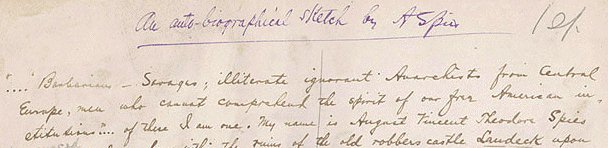 An auto-biographical sketch by A Spies
"...." Barbarians — Savages; illiterate ignorant Anarchists from Central
Europe, men who cannot comprehend the spirit of our free American in-
stitutions".... of these I am one. My name is August Vincent Theodore Spies
within the ruins of the old robbers castle Landeck upon